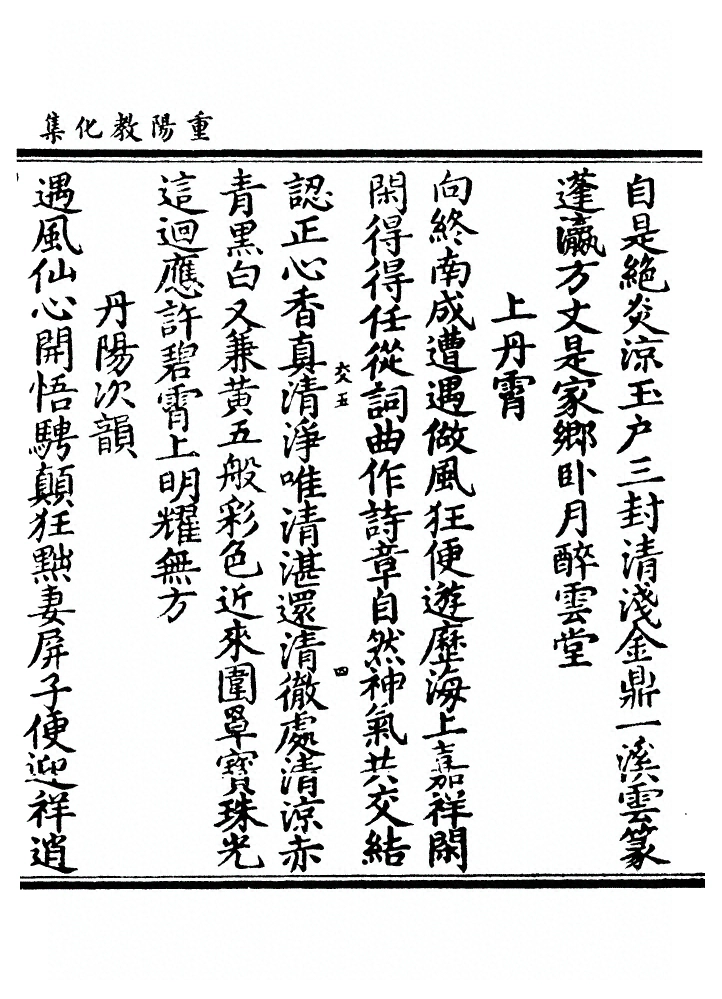 重陽教化集
自是絶炎涼玉户三封清淺金鼎一溪雲篆
蓬瀛方丈是家鄉卧月醉雲堂
上丹霄
向終南成遭遇做風狂便遊歷海上嘉祥閑
閑得得任從詞曲作詩章自然神氣共交結
交五
四
認正心香真清淨唯清湛還清徹處清涼赤
青黑白又兼黃五般彩色近來圍罩寶珠光
這迴應許碧霄上明耀無方
丹陽次韻
遇風仙心開悟騁顛狂黜妻屏子便迎祥逍